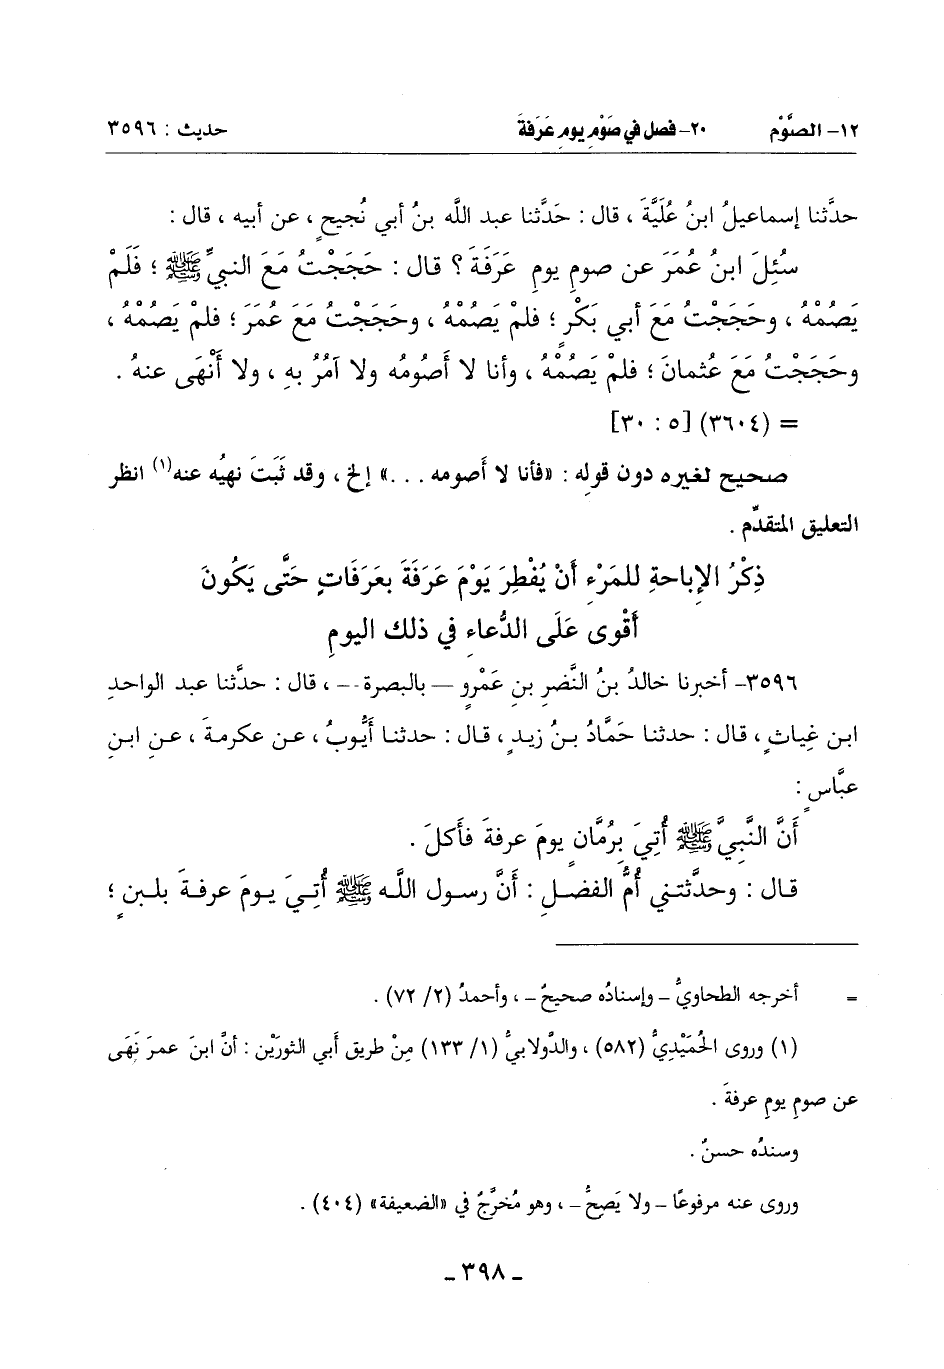 ١٢- الصَّوْم ٢٠- فصل في صَوْمِ يومِ عَرَفةَ حديث : ٣٥٩٦
حدَّثنا إسماعيلُ ابنُ عُلَيَّةَ ، قال : حَدَّثنا عبد اللَّه بنُ أبي نُجيحٍ ، عن أبيه ، قال :
سُئِلَ ابنُ عُمَرَ عن صومِ يومِ عَرَفَةَ ؟ قال : حَجَجْتُ مَعَ النبيِّ ﷺ ؛ فَلَمْ
يَصُمْهُ ، وحَجَجْتُ مَعَ أبي بَكْرٍ ؛ فلمْ يَصُمْهُ ، وحَجَجْتُ مَعَ عُمَرَ ؛ فلمْ يَصُمْهُ ،
وحَجَجْتُ مَعَ عُثمانَ ؛ فلمْ يَصُمْهُ ، وأنا لا أَصُومُه ولا آمُرُ بهِ ، ولا أَنْهَى عنهُ .
= (٣٦٠٤) [٥ : ٣٠]
صحيح لغيره دون قوله : «فأنا لا أَصومه . . .» إلخ ، وقد ثَبَتَ نهيُه عنه(١) انظر
التعليق المتقدِّم .
ذِكْرُ الإباحةِ للمَرْءِ أَنْ يُفْطِرَ يَوْمَ عَرَفَةَ بعَرَفَاتٍ حَتَّى يَكُونَ
أَقْوى عَلَى الدُّعاءِ في ذلك اليومِ
٣٥٩٦- أخبرنا خالدُ بنُ النَّضرِ بنِ عَمْرٍو – بالبصرة - - ، قال : حدَّثنا عبد الواحدِ
ابن غِياثٍ ، قال : حدثنا حَمَّادُ بنُ زيدٍ ، قال : حدثنا أَيُّوبُ ، عن عكرمةَ ، عنِ ابنِ
عبَّاسٍ :
أَنَّ النَّبِيَّ ﷺ أُتِيَ بِرُمَّانٍ يومَ عرفةَ فأَكلَ .
قال : وحدَّثتني أُمُّ الفضلِ : أَنَّ رسول اللَّه ﷺ أُتِيَ يومَ عرفةَ بلبنٍ ؛
= أخرجه الطحاويُّ – وإسنادُه صحيحٌ – ، وأحمدُ (٢/ ٧٢) .
(١) وروى الحُمَيْدِيُّ (٥٨٢) ، والدُّولابيُّ (١/ ١٣٣) مِنْ طريق أبي الثورَيْن : أنَّ ابنَ عمرَ نَهَى
عن صومِ يومِ عرفةَ .
وسندُه حسنٌ .
وروى عنه مرفوعًا – ولا يَصِحُّ – ، وهو مُخرَّجٌ في «الضعيفة» (٤٠٤) .
- ٣٩٨ -